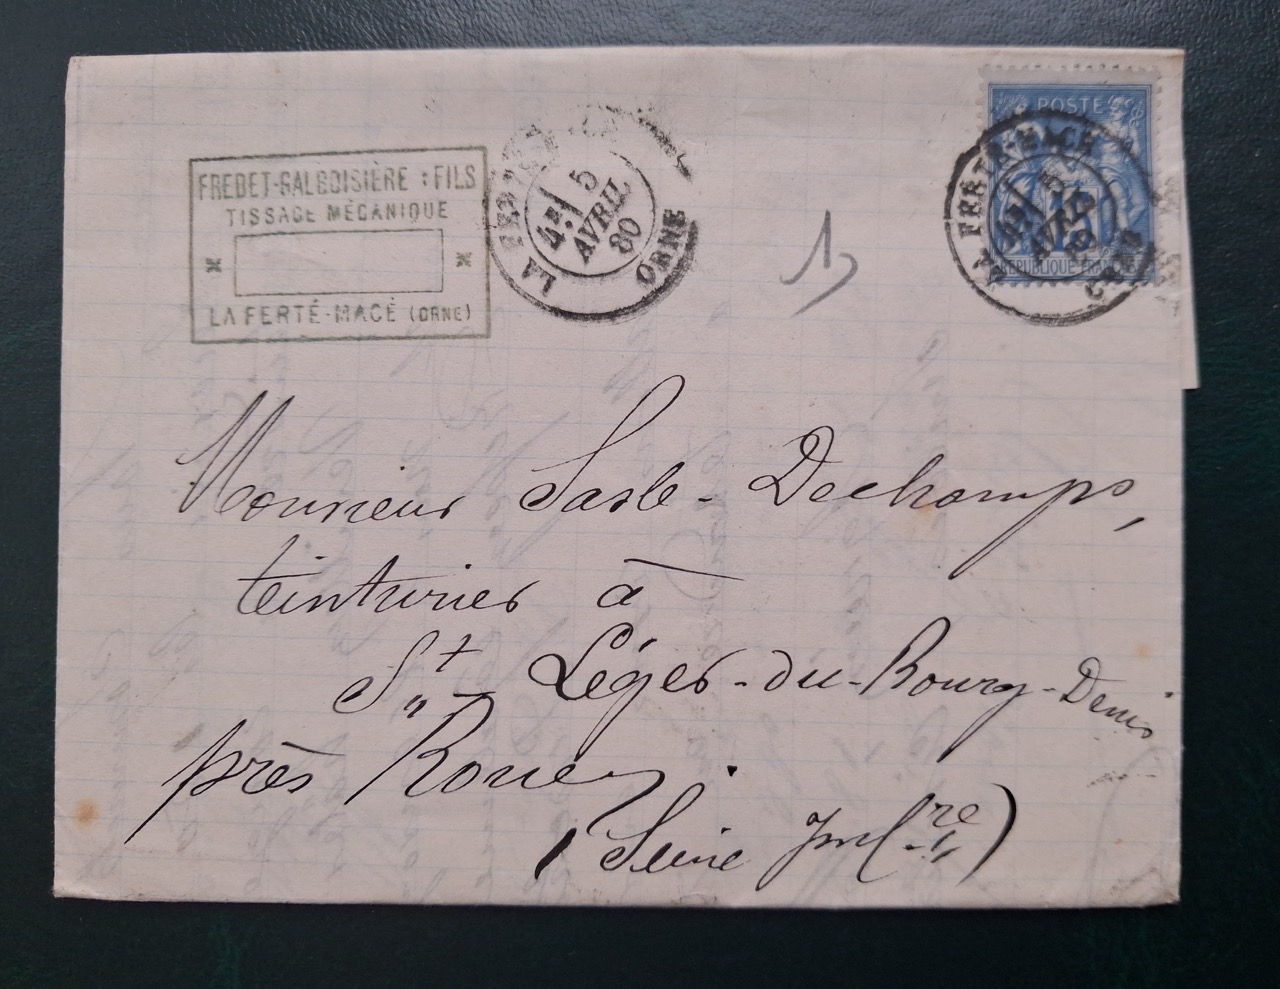 FREBET-GALBOISIÈRE & FILS
TISSAGE MÉCANIQUE
LA FERTÉ-MACÉ (ORNE)
LA FERTÉ-MACÉ
4E
5
AVRIL
80
ORNE
POSTE
LA FERTÉ-MACÉ
4E
5
AVRIL
80
ORNE
15
RÉPUBLIQUE FRANÇAISE
Monsieur Dechamps,
teinturier à
St Léger-du-Bourg-Denis
près Rouen
(Seine Infre)